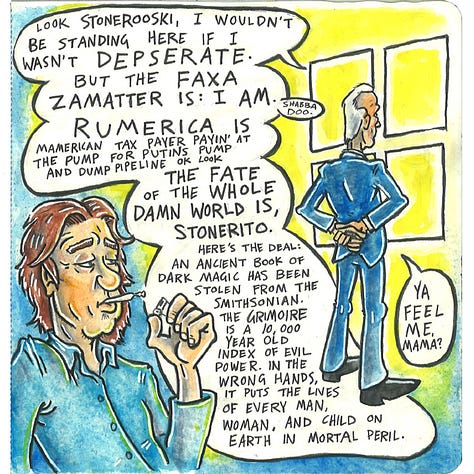 LOOK STONEROOSKI, I WOULDN'T
BE STANDING HERE IF I
WASN'T DEPSERATE.
BUT THE FAXA
ZAMATTER IS: I AM.
SHABBA
DOO.
RUMERICA IS
MAMERICAN TAX PAYER PAYIN' AT
THE PUMP FOR PUTINS PUMP
AND DUMP PIPELINE OK LOOK
THE FATE
OF THE WHOLE
DAMN WORLD IS,
STONERITO.
HERE'S THE DEAL:
AN ANCIENT BOOK OF
DARK MAGIC HAS BEEN
STOLEN FROM THE
SMITHSONIAN.
THE GRIMOIRE
IS A 10,000
YEAR OLD
INDEX OF EVIL
POWER. IN THE
WRONG HANDS,
IT PUTS THE LIVES
OF EVERY MAN,
WOMAN, AND CHILD ON
EARTH IN MORTAL PERIL.
YA
FEEL
ME,
MAMA?